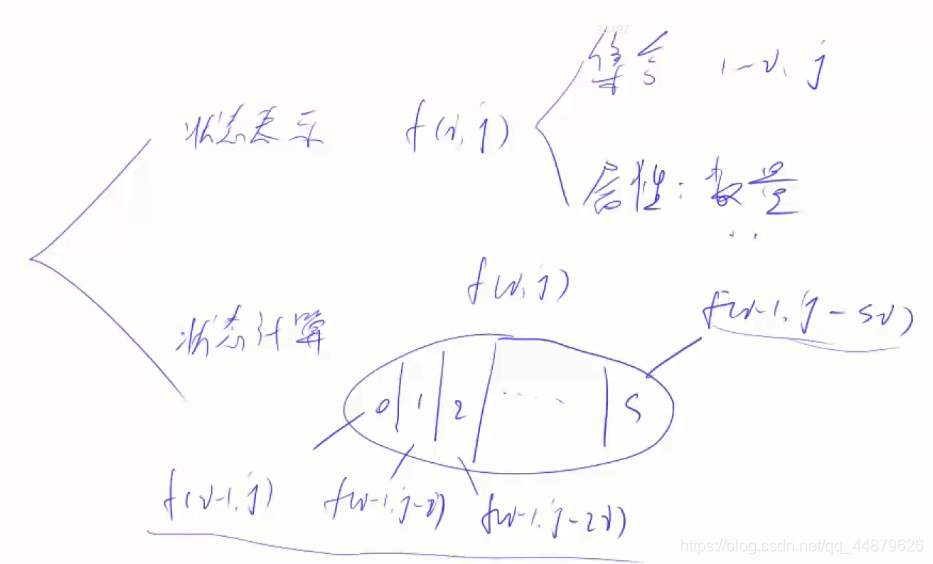 集合 1-i, j
状态表示 f(i, j)
属性: 数量
f(i, j)
f(i-1, j-si)
状态计算
0 1 2 ...... s
f(i-1, j) f(i-1, j-i) f(i-1, j-2i)
https://blog.csdn.net/qq_44879626